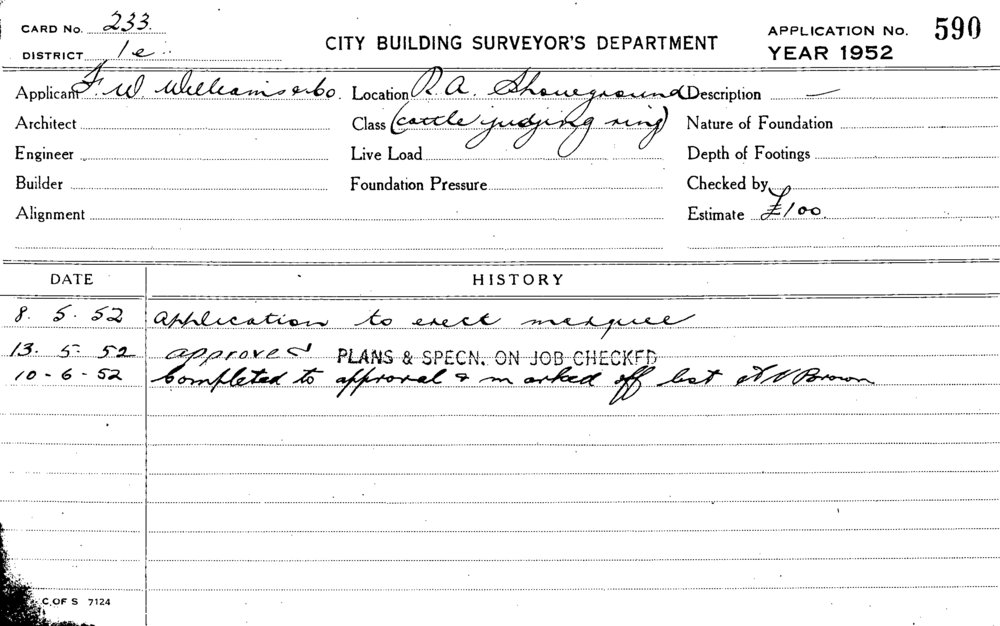 CARD No. 233.
DISTRICT 1e
CITY BUILDING SURVEYOR'S DEPARTMENT
APPLICATION No. 590
YEAR 1952
Applicant F. W. Williams & Co. Location R. A. Showground Description —
Architect Class (cattle judging ring) Nature of Foundation
Engineer Live Load Depth of Footings
Builder Foundation Pressure Checked by
Alignment Estimate £100
DATE HISTORY
8. 5. 52 Application to erect marquee
13. 5. 52 approved PLANS & SPECN. ON JOB CHECKED
10-6-52 Completed to approval & marked off list Brown
C. OF S 7124